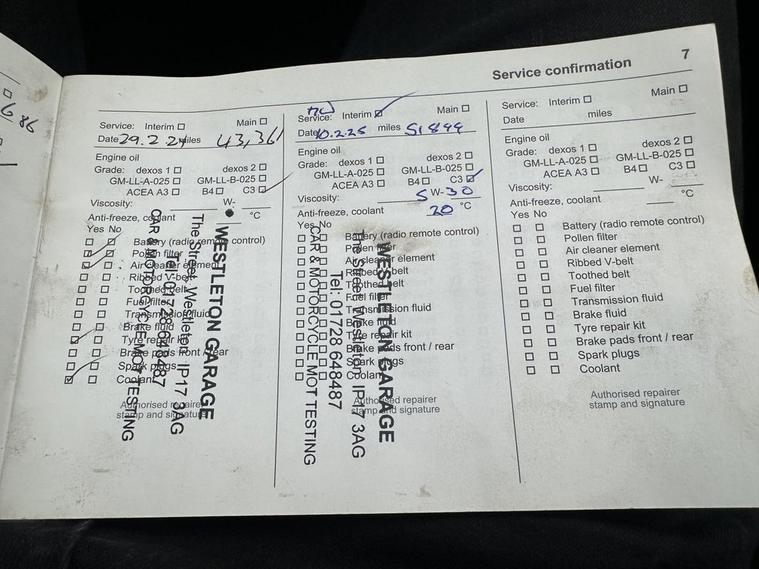 Service confirmation 7
Service: Interim Main
Date 29.2.24 miles 43,361
Engine oil
Grade: dexos 1 dexos 2
GM-LL-A-025 GM-LL-B-025
ACEA A3 B4 C3
Viscosity: W-
Anti-freeze, coolant °C
Yes No
Battery (radio remote control)
Pollen filter
Air cleaner element
Ribbed V-belt
Toothed belt
Fuel filter
Transmission fluid
Brake fluid
Tyre repair kit
Brake pads front / rear
Spark plugs
Coolant
Authorised repairer
stamp and signature
WESTLETON GARAGE
The Street, Westleton, IP17 3AG
Tel: 01728 648487
CAR & MOTORCYCLE MOT TESTING
Service: Interim Main
Date 10.2.25 miles 51899
Engine oil
Grade: dexos 1 dexos 2
GM-LL-A-025 GM-LL-B-025
ACEA A3 B4 C3
Viscosity: 5 W- 30
Anti-freeze, coolant 20 °C
Yes No
Battery (radio remote control)
Pollen filter
Air cleaner element
Ribbed V-belt
Toothed belt
Fuel filter
Transmission fluid
Brake fluid
Tyre repair kit
Brake pads front / rear
Spark plugs
Coolant
Authorised repairer
stamp and signature
WESTLETON GARAGE
The Street, Westleton, IP17 3AG
Tel: 01728 648487
CAR & MOTORCYCLE MOT TESTING
Service: Interim Main
Date miles
Engine oil
Grade: dexos 1 dexos 2
GM-LL-A-025 GM-LL-B-025
ACEA A3 B4 C3
Viscosity: W-
Anti-freeze, coolant °C
Yes No
Battery (radio remote control)
Pollen filter
Air cleaner element
Ribbed V-belt
Toothed belt
Fuel filter
Transmission fluid
Brake fluid
Tyre repair kit
Brake pads front / rear
Spark plugs
Coolant
Authorised repairer
stamp and signature